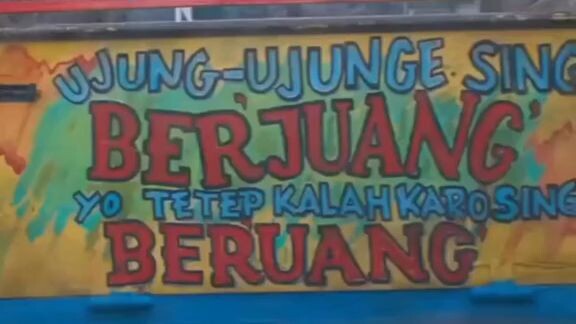 UJUNG-UJUNGE SING
'BERJUANG'
YO TETEP KALAH KARO SING
BERUANG